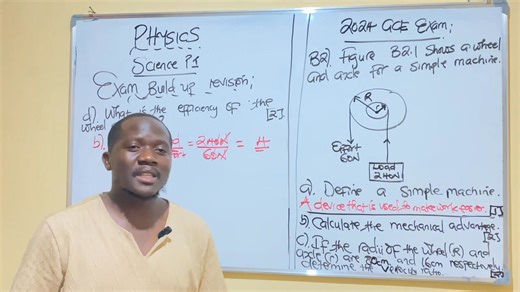 PHYSICS
Science P1
Exam Build up revision;
d) What is the efficiency of the
wheel [2]
b) = 240N = 4
60N
2024 GCE Exam;
B2. Figure B2.1 shows a wheel
and axle for a simple machine.
R
r
Effort
60N
Load
240N
a) Define a simple machine.
A device that is used to make work easier. [1]
b) Calculate the mechanical advantage. [2]
c) If the radii of the wheel (R) and
axle (r) are 80cm and 16cm respectively
determine the velocity ratio. [2]